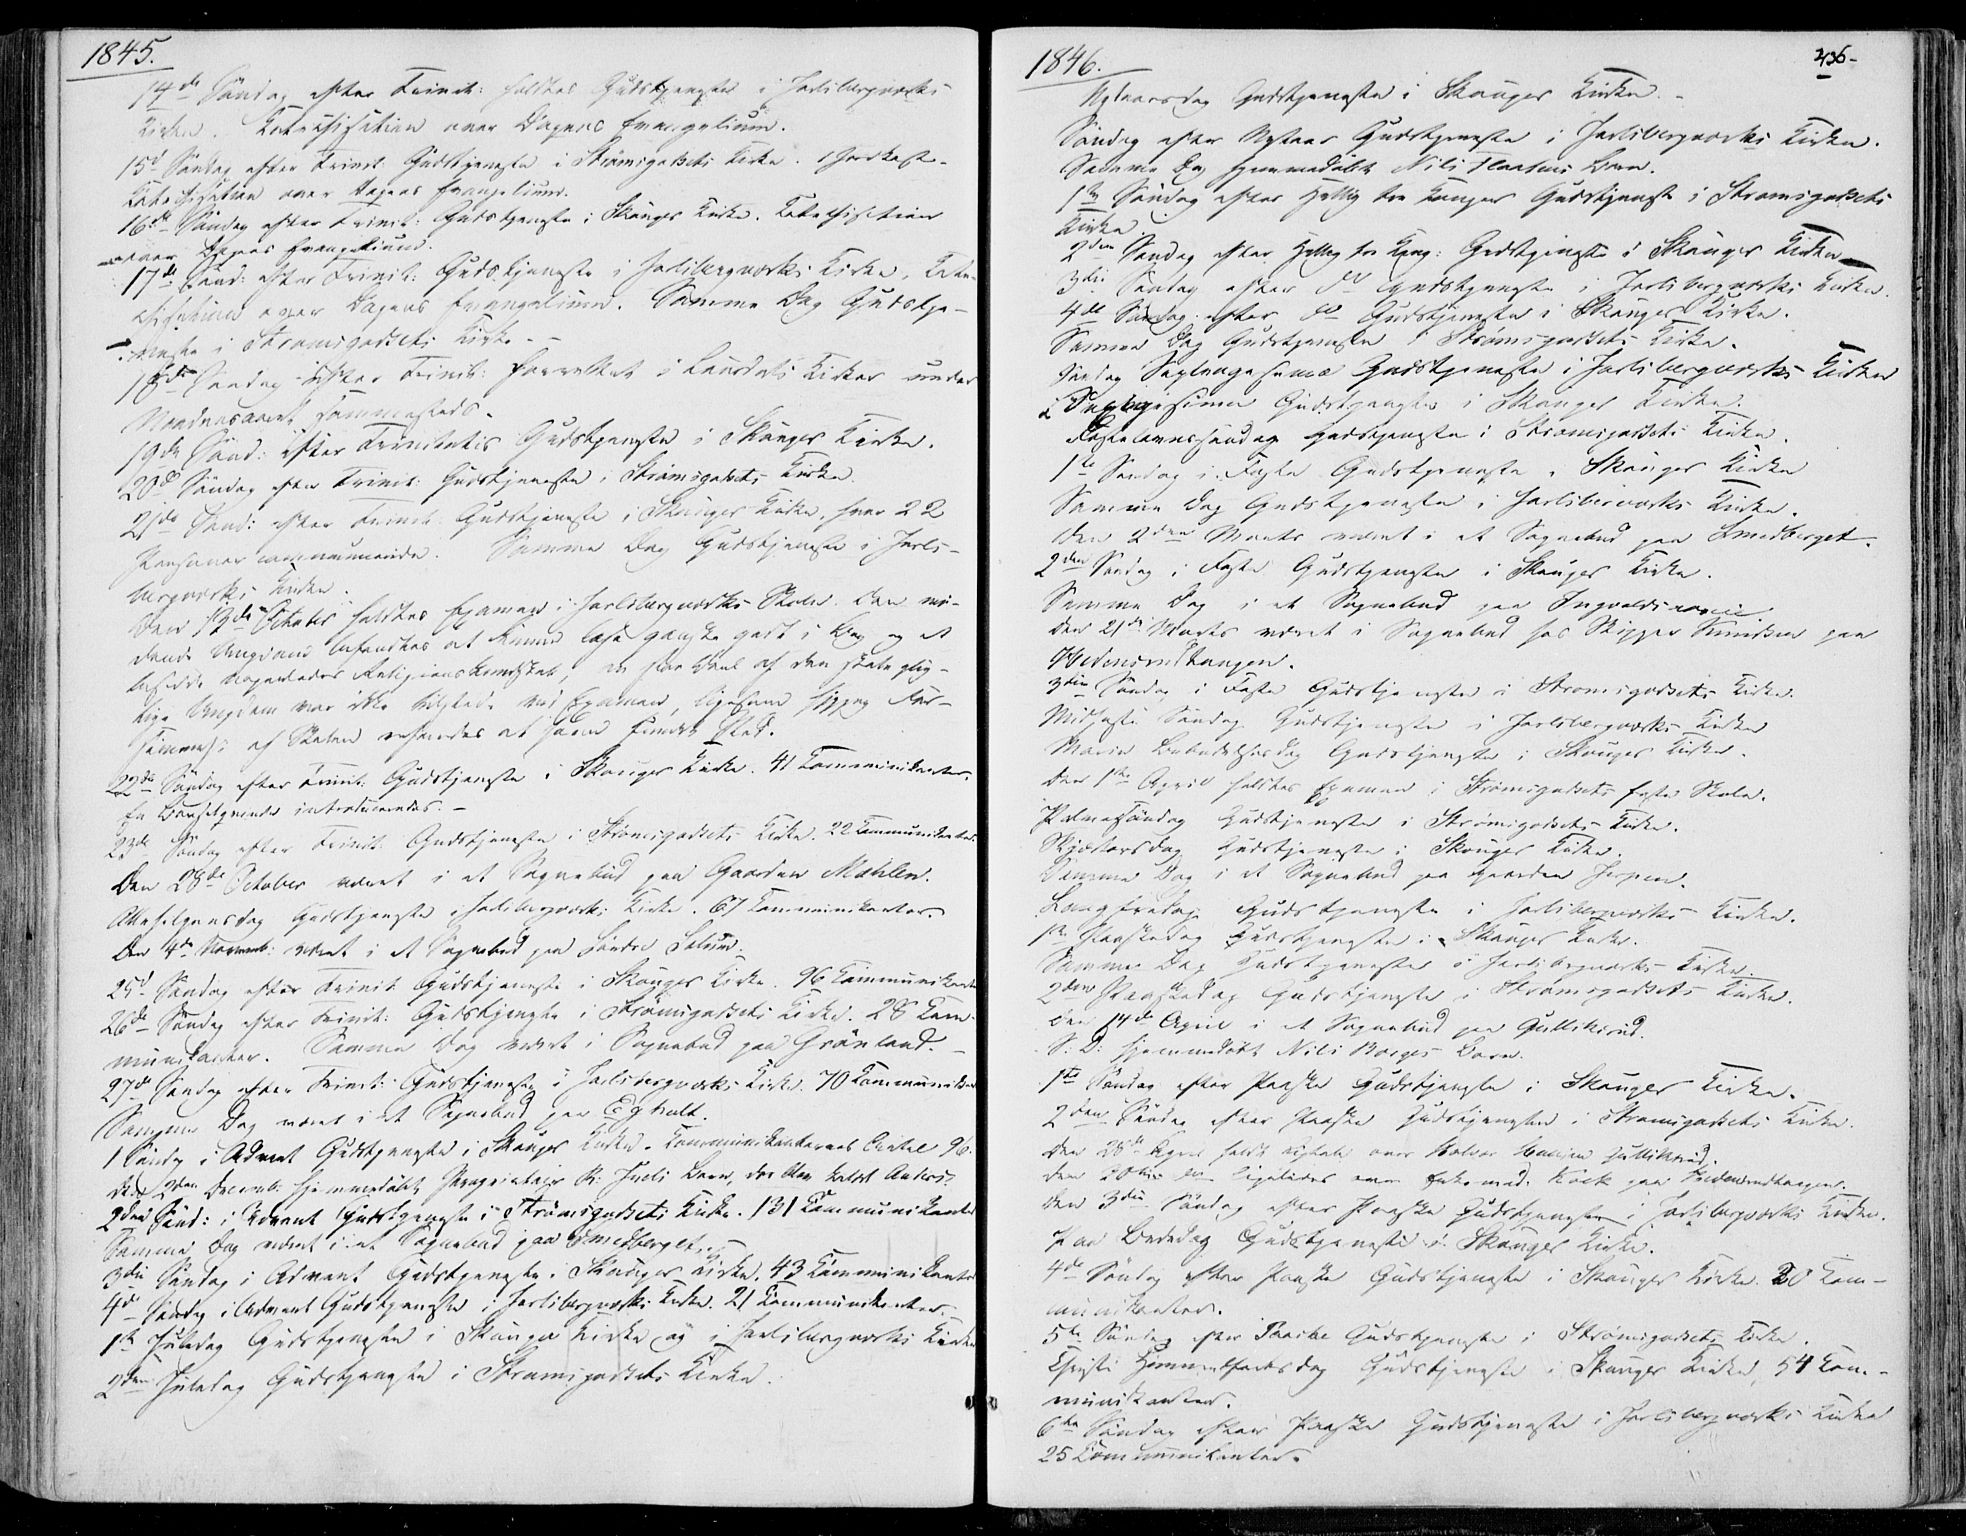 1845.
14de Søndag efter Trinit: holdtes Gudstjeneste i Jarlsbergværks
Kirken. Katechisation over Dagens Evangelium.
15d Søndag efter Trinit: Gudstjeneste i Strømsgodsets Kirke.
Katechisation over Dagens Evangelium.
16de Søndag efter Trinit: Gudstjeneste i Skouger Kirke. Katechisation
over Dagens Evangelium.
17de Sønd: efter Trinit: Gudstjeneste i Jarlsbergværks Kirke, Kate-
chisation over Dagens Evangelium. Samme Dag Gudstje-
neste i Strømsgodsets Kirke.
18de Søndag efter Trinit: forrettet i Laurdals Kirke under
19de Sønd: efter Trinitatis Gudstjeneste i Skouger Kirke.
20de Søndag efter Trinit: Gudstjeneste i Strømsgodsets Kirke.
21de Sønd: efter Trinit: Gudstjeneste i Skouger Kirke, hvor 22
Personer communicerede. Samme Dag Gudstjeneste i Jarls-
bergværks Kirke.
Den October holdtes Examen i Jarlsbergværks Skole. Den mø-
dende Ungdom befandtes at kunne læse ganske godt i Bog og at
besidde Religionskundskab, en stor Deel af den skolepligt-
tige Ungdom var ikke tilstede ved Examen, ligesom hyppig For-
sømmelse af Skolen erfaredes at have fundet Sted.
22de Søndag efter Trinit: Gudstjeneste i Skouger Kirke. 41 Communikanter.
En Barselqvinde introduceredes. –
23de Søndag efter Trinit: Gudstjeneste i Strømsgodsets Kirke. 22 Communikanter.
Den 28de October været i et Sognebud paa Gaarden Mæhlen.
Allehelgensdag Gudstjeneste i Jarlsbergværks Kirke. 67 Communikanter.
Den 4de Novemb: været i et Sognebud paa Søndre Solum.
25d Søndag efter Trinit: Gudstjeneste i Skouger Kirke. 96 Communikanter
26de Søndag efter Trinit: Gudstjeneste i Strømsgodsets Kirke. 28 Com-
munikanter. Samme Dag været i Sognebud paa Grønland. –
27de Søndag efter Trinit: Gudstjeneste i Jarlsbergværks Kirke. 70 Communikan
Samme Dag været i et Sognebud paa Egholt.
1 Søndag i Advent Gudstjeneste i Skouger Kirke. Communikanternes Antal 96.
Den 2den Decemb: hjemmedøbt Proprietair Juels Barn,
2den Sønd: i Advent Gudstjeneste i Strømsgodsets Kirke. 131 Communikanter
Samme Dag været i et Sognebud paa Smedberget.
3die Søndag i Advent Gudstjeneste i Skouger Kirke. 43 Communikanter
4de Søndag i Advent Gudstjeneste i Jarlsbergværks Kirke. 21 Communikanter.
1ste Juledag Gudstjeneste i Skouger Kirke og i Jarlsbergværks Kirke
2den Juledag Gudstjeneste i Strømsgodsets Kirke.
1846.
Nytaarsdag Gudstjeneste i Skouger Kirke. –
Søndag efter Nytaar Gudstjeneste i Jarlsbergværks Kirke.
Samme Dag hjemmedøbt Nils Barn.
1ste Søndag efter Hellig tre Konger Gudstjeneste i Strømsgodsets
Kirke.
2den Søndag efter Hellig tre Kong: Gudstjeneste i Skouger Kirke
3die Søndag efter do Gudstjeneste i Jarlsbergværks Kirke.
4de Søndag efter do Gudstjeneste i Skouger Kirke.
Samme Dag Gudstjeneste i Strømsgodsets Kirke.
Søndag Septuagesima Gudstjeneste i Jarlsbergværks Kirke
Gudstjeneste i Skouger Kirke.
Fastelavnssøndag Gudstjeneste i Strømsgodsets Kirke.
1ste Søndag i Faste Gudstjeneste i Skouger Kirke
Samme Dag Gudstjeneste i Jarlsbergværks Kirke.
Den 2den Marts været i et Sognebud paa Smedberget.
2den Søndag i Faste Gudstjeneste i Skouger Kirke.
Samme Dag i et Sognebud paa
Den 21de Marts været i Sognebud hos Skipper Knudsen paa
Hedensrudtangen.
3die Søndag i Faste Gudstjeneste i Strømsgodsets Kirke.
Midfaste Søndag Gudstjeneste i Jarlsbergværks Kirke
Maria Bebudelsesdag Gudstjeneste i Skouger Kirke.
Den 1ste April holdtes Examen i Strømsgodsets faste Skole.
Palmesøndag Gudstjeneste i Strømsgodsets Kirke.
Skjærtorsdag Gudstjeneste i Skouger Kirke.
Samme Dag i et Sognebud paa Gaarden
Langfredag Gudstjeneste i Jarlsbergværks Kirke.
1ste Paaskedag Gudstjeneste i Skouger Kirke.
Samme Dag Gudstjeneste i Jarlsbergværks Kirke.
2den Paaskedag Gudstjeneste i Strømsgodsets Kirke.
Den 14de April i et Sognebud paa Gulliksrud.
S: D: hjemmedøbt Nils Borges Barn.
1ste Søndag efter Paaske Gudstjeneste i Skouger Kirke.
2den Søndag efter Paaske Gudstjeneste i Strømsgodsets Kirke.
Den 28de April holdt over Halvor Hansen Gulliksrud.
ligeledes over Enkemad: Kock paa Hedensrudtangen.
Den 3die Søndag efter Paaske Gudstjeneste i Jarlsbergværks Kirke.
Paa Bededag Gudstjeneste i Skouger Kirke.
4de Søndag efter Paaske Gudstjeneste i Skouger Kirke. 20 Com-
munikanter.
5te Søndag efter Paaske Gudstjeneste i Strømsgodsets Kirke.
Christi Himmelfartsdag Gudstjeneste i Skouger Kirke, 54 Com-
munikanter.
6te Søndag efter Paaske Gudstjeneste i Jarlsbergværks Kirke
25 Communikanter.